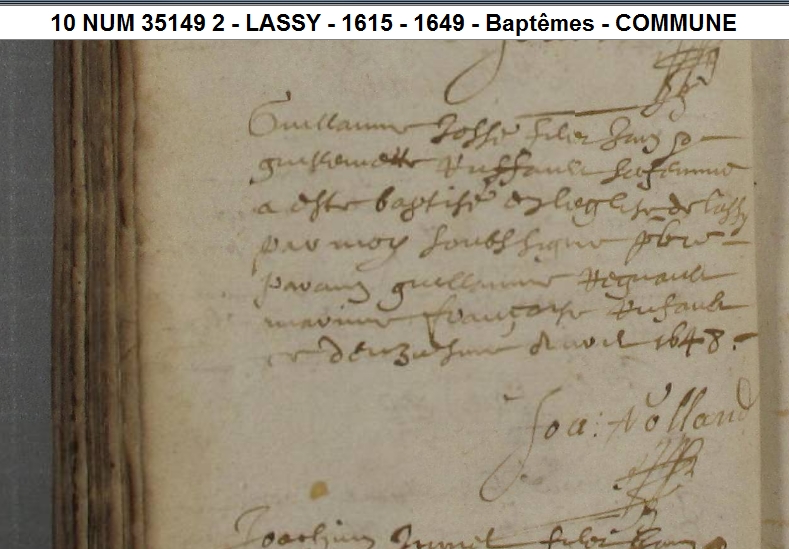 10 NUM 35149 2 - LASSY - 1615 - 1649 - Baptêmes - COMMUNE
Guillaume Josse filz Jan &
guillemette Ruffault sa femme
a este baptisé en leglise de lassy
par moy soubssigne pbre
parain guillaume Regnault
marine françoise Rufault
ce deuziesme avril 1648.
Joa: Nolland
Joachim filz